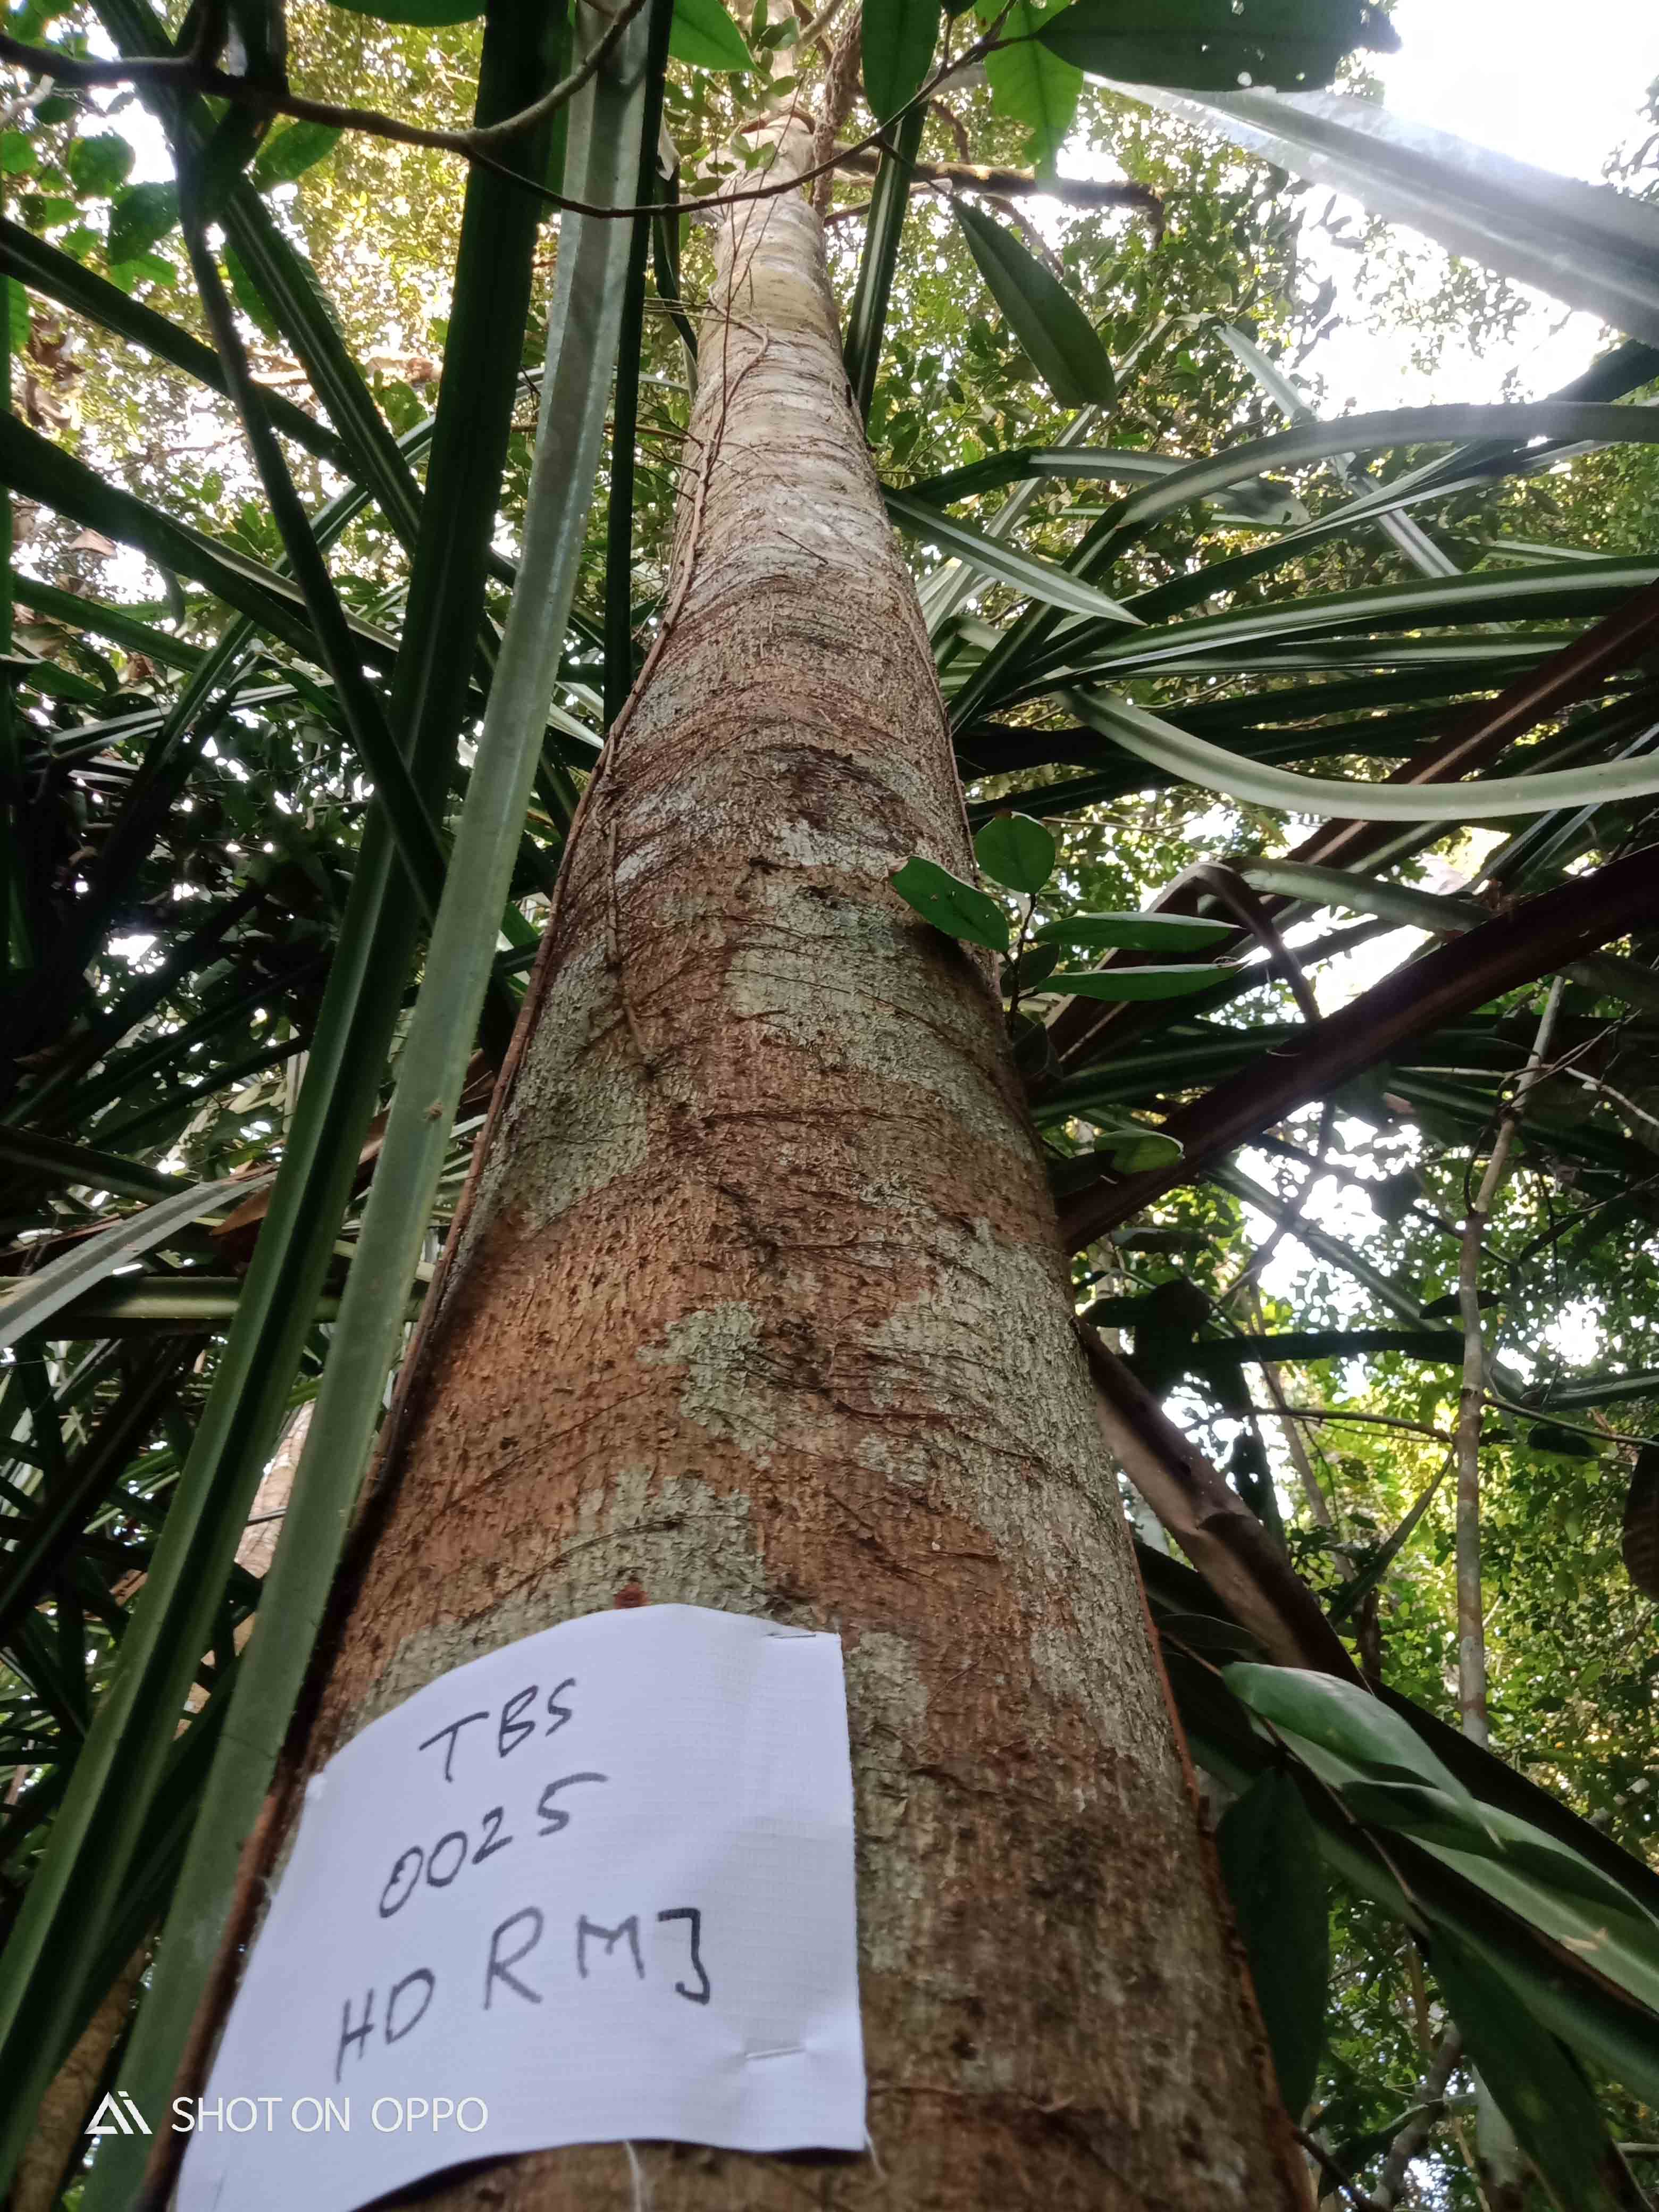 TBS
0025
HD RMJ
SHOT ON OPPO